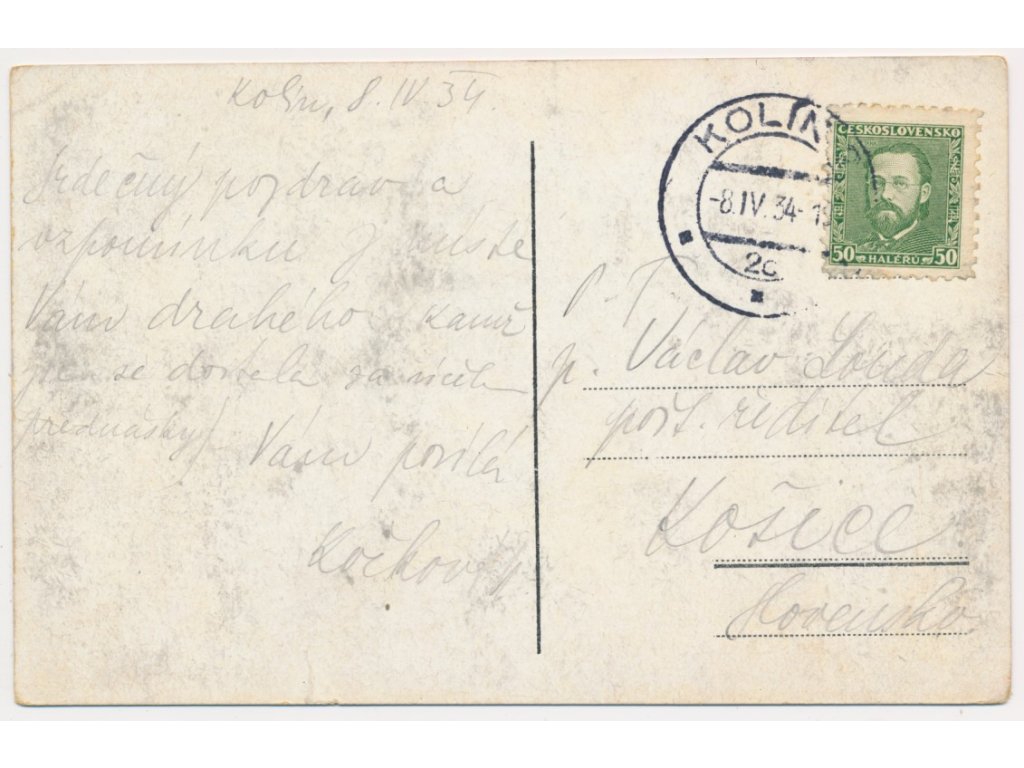 Kolín, 8. IV 34.
Srdečný pozdrav a
vzpomínku z místa
Vám drahého, kamž
jsem se dostala za účelem
přednášky. Vám posílá
Kočkov
KOLÍN
-8.IV.34-19
2c
ČESKOSLOVENSKO
50 HALÉŘŮ 50
P. T.
p. Václav Louda
pošt. ředitel
Košice
Slovensko